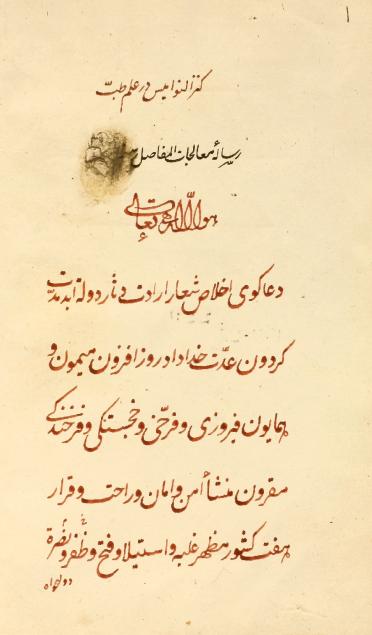 کنز النوامیس در علم طبّ
رسالهٔ معالجات المفاصل
هو الله تعالی
دعاکوی اخلاص شعار ارادت دثار دولة ابد مدّت
کردون عدّت خداداد روز افزون میمون و
همایون فیروزی و فرخی و خجستکی و فرخندکی
مقرون منشأ امن و امان و راحت و قرار
هفت کشور مظهر غلبه و استیلا و فتح و ظفر و نصرة
دولتخواه